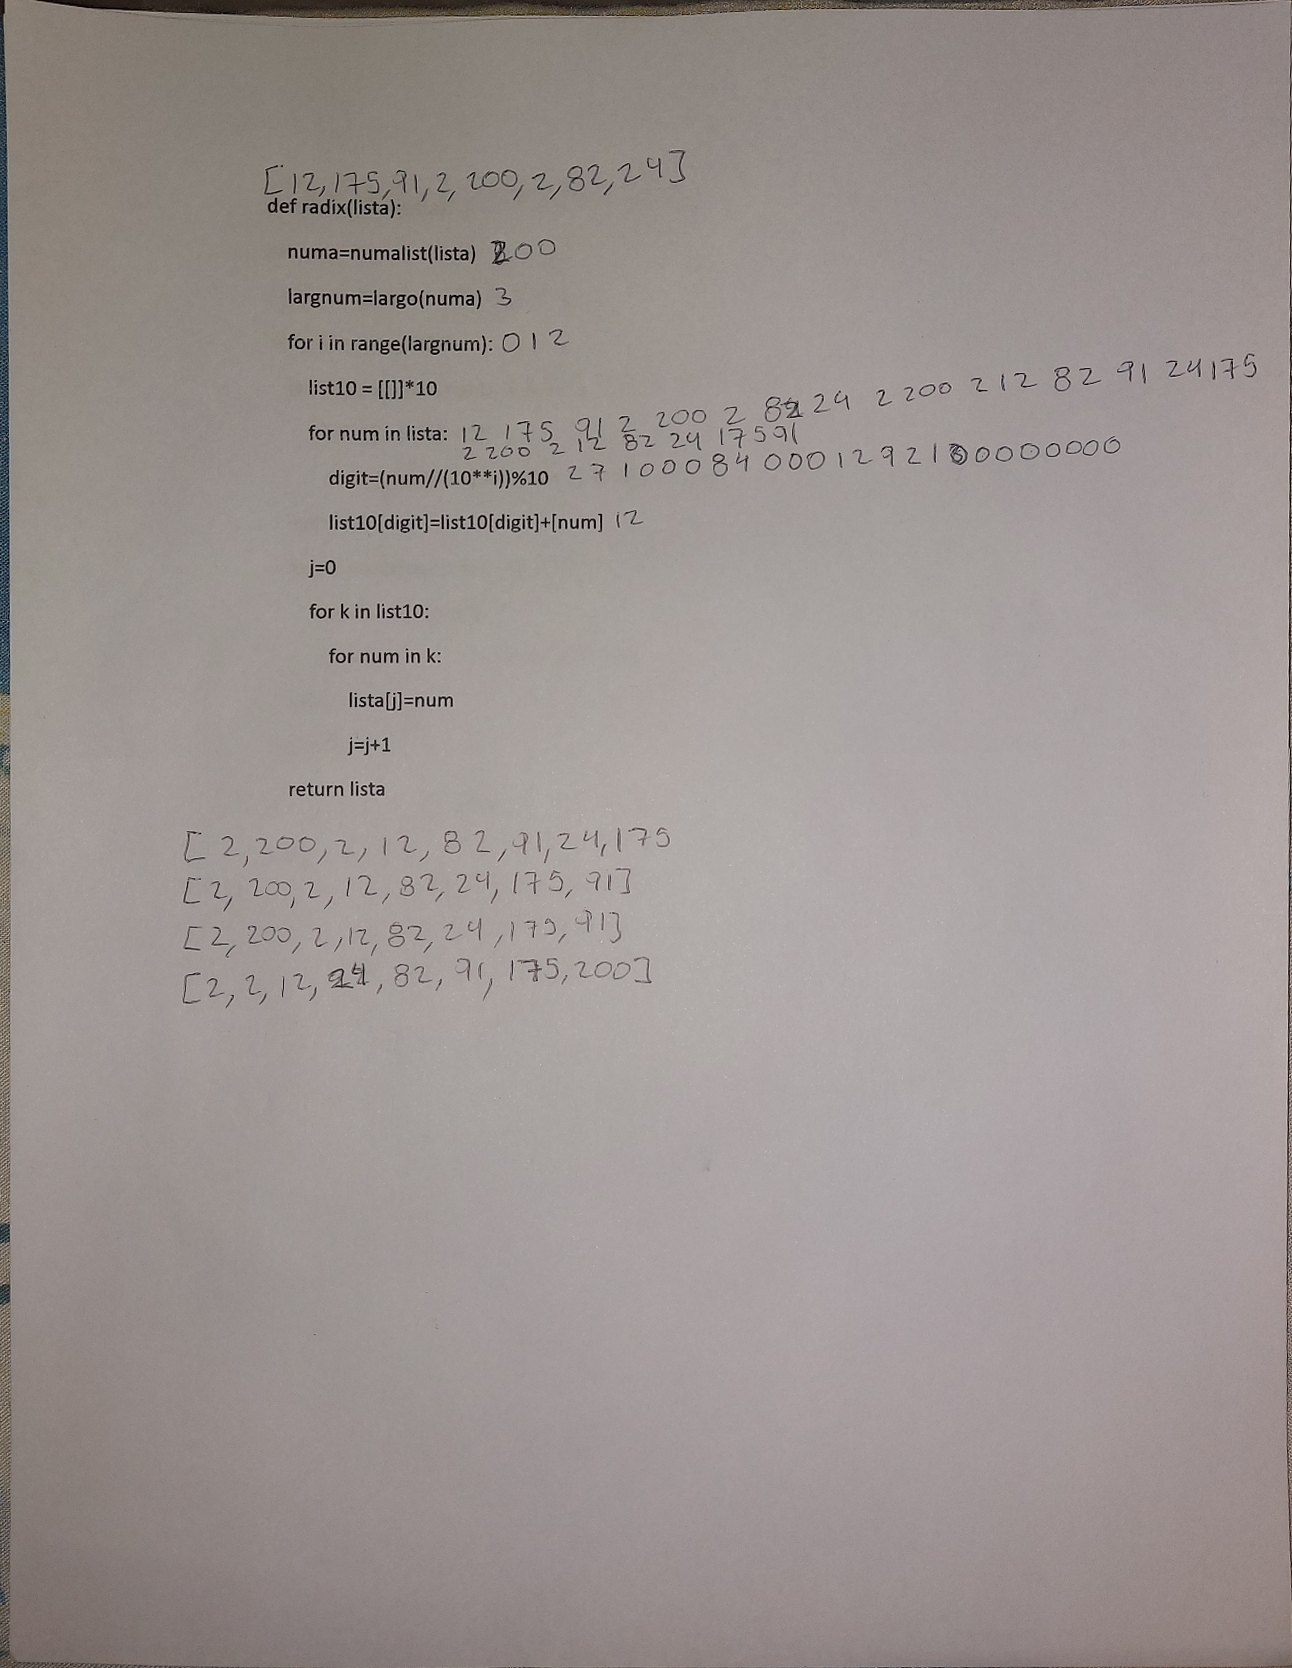 [12,175,91,2,200,2,82,24]
def radix(lista):
numa=numalist(lista) 200
largnum=largo(numa) 3
for i in range(largnum): 0 1 2
list10 = [[]]*10
for num in lista: 12 175 91 2 200 2 82 24 2 200 2 12 82 91 24 175
2 200 2 12 82 24 175 91
digit=(num//(10**i))%10 2 7 1 0 0 0 8 4 0 0 0 1 2 9 2 1 0 0 0 0 0 0 0 0
list10[digit]=list10[digit]+[num] 12
j=0
for k in list10:
for num in k:
lista[j]=num
j=j+1
return lista
[2,200,2,12,82,91,24,175
[2, 200,2,12,82,24,175,91]
[2,200,2,12,82,24,175,91]
[2,2,12,24,82,91,175,200]